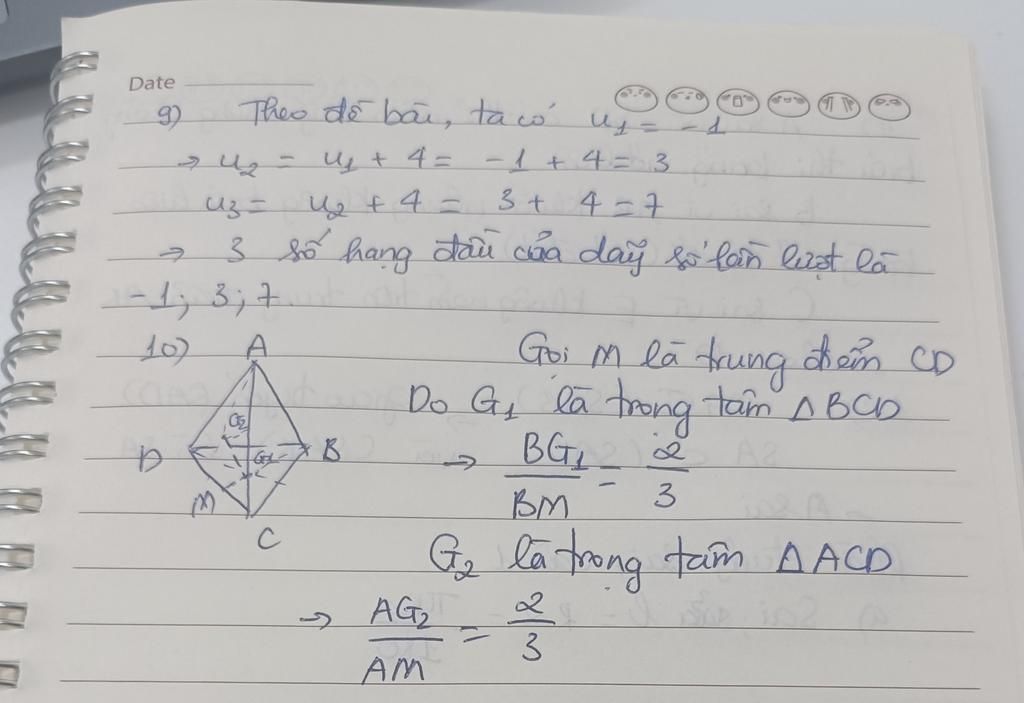 Date
9) Theo đề bài, ta có u₁ = -1
→ u₂ = u₁ + 4 = -1 + 4 = 3
u₃ = u₂ + 4 = 3 + 4 = 7
→ 3 số hạng đầu của dãy số lần lượt là
-1; 3; 7
10) Gọi M là trung điểm CD
A
Do G₁ là trọng tâm ΔBCD
G₂
D G₁ B
→ BG₁/BM = 2/3
M
C
G₂ là trọng tâm ΔACD
→ AG₂/AM = 2/3